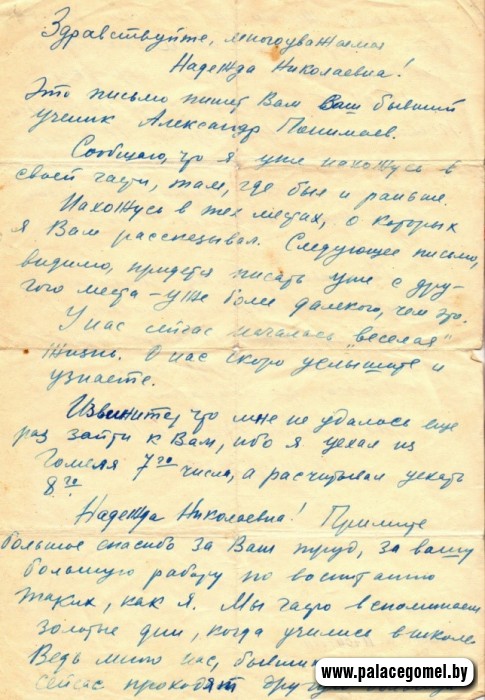 Здравствуйте, многоуважаемая
Надежда Николаевна!
Это письмо пишет Вам Ваш бывший
ученик Александр
Сообщаю, что я уже нахожусь в
своей части, там, где был и раньше.
Нахожусь в тех местах, о которых
я Вам рассказывал. Следующее письмо,
видимо, придется писать уже с дру-
гого места – уже более далекого, чем это.
У нас сейчас началась "веселая"
жизнь. О нас скоро услышите и
узнаете.
Извините, что мне не удалось еще
раз зайти к Вам, ибо я уехал из
Гомеля 7го числа, а расчитывал уехать
8го
Надежда Николаевна! Примите
большое спасибо за Ваш труд, за вашу
большую работу по воспитанию
таких, как я. Мы часто вспоминаем
золотые дни, когда учились в школе
Ведь много нас,
сейчас проходят
www.palacegomel.by